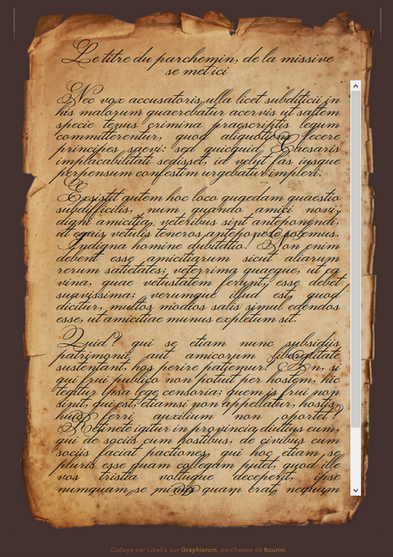 Le titre du parchemin, de la missive
se met ici
Nec vox accusatoris ulla licet subditicii in
his malorum quaerebatur acervis ut saltem
specie tenus crimina praescriptis legum
committerentur, quod aliquotiens fecere
principes saevi: sed quicquid Caesaris
implacabilitati sedisset, id velut fas iusque
perpensum confestim urgebatur impleri.
Exsistit autem hoc loco quaedam quaestio
subdifficilis, num quando amici novi,
digni amicitia, veteribus sint anteponendi,
ut equis vetulis teneros anteponere solemus.
Indigna homine dubitatio! Non enim
debent esse amicitiarum sicut aliarum
rerum satietates; veterrima quaeque, ut ea
vina, quae vetustatem ferunt, esse debet
suavissima; verumque illud est, quod
dicitur, multos modios salis simul edendos
esse, ut amicitiae munus expletum sit.
Quid? qui se etiam nunc subsidiis
patrimonii aut amicorum liberalitate
sustentant, hos perire patiemur? An, si
qui frui publico non potuit per hostem, hic
tegitur ipsa lege censoria; quem is frui non
sinit, qui est, etiamsi non appellatur, hostis,
huic ferri auxilium non oportet?
Retinete igitur in provincia diutius eum,
qui de sociis cum hostibus, de civibus cum
sociis faciat pactiones, qui hoc etiam se
pluris esse quam collegam putet, quod ille
vos tristia voltuque deceperit, ipse
numquam se minus quam erat, nequam
Codage par Libella sur Graphiorum; parchemin de ftourini